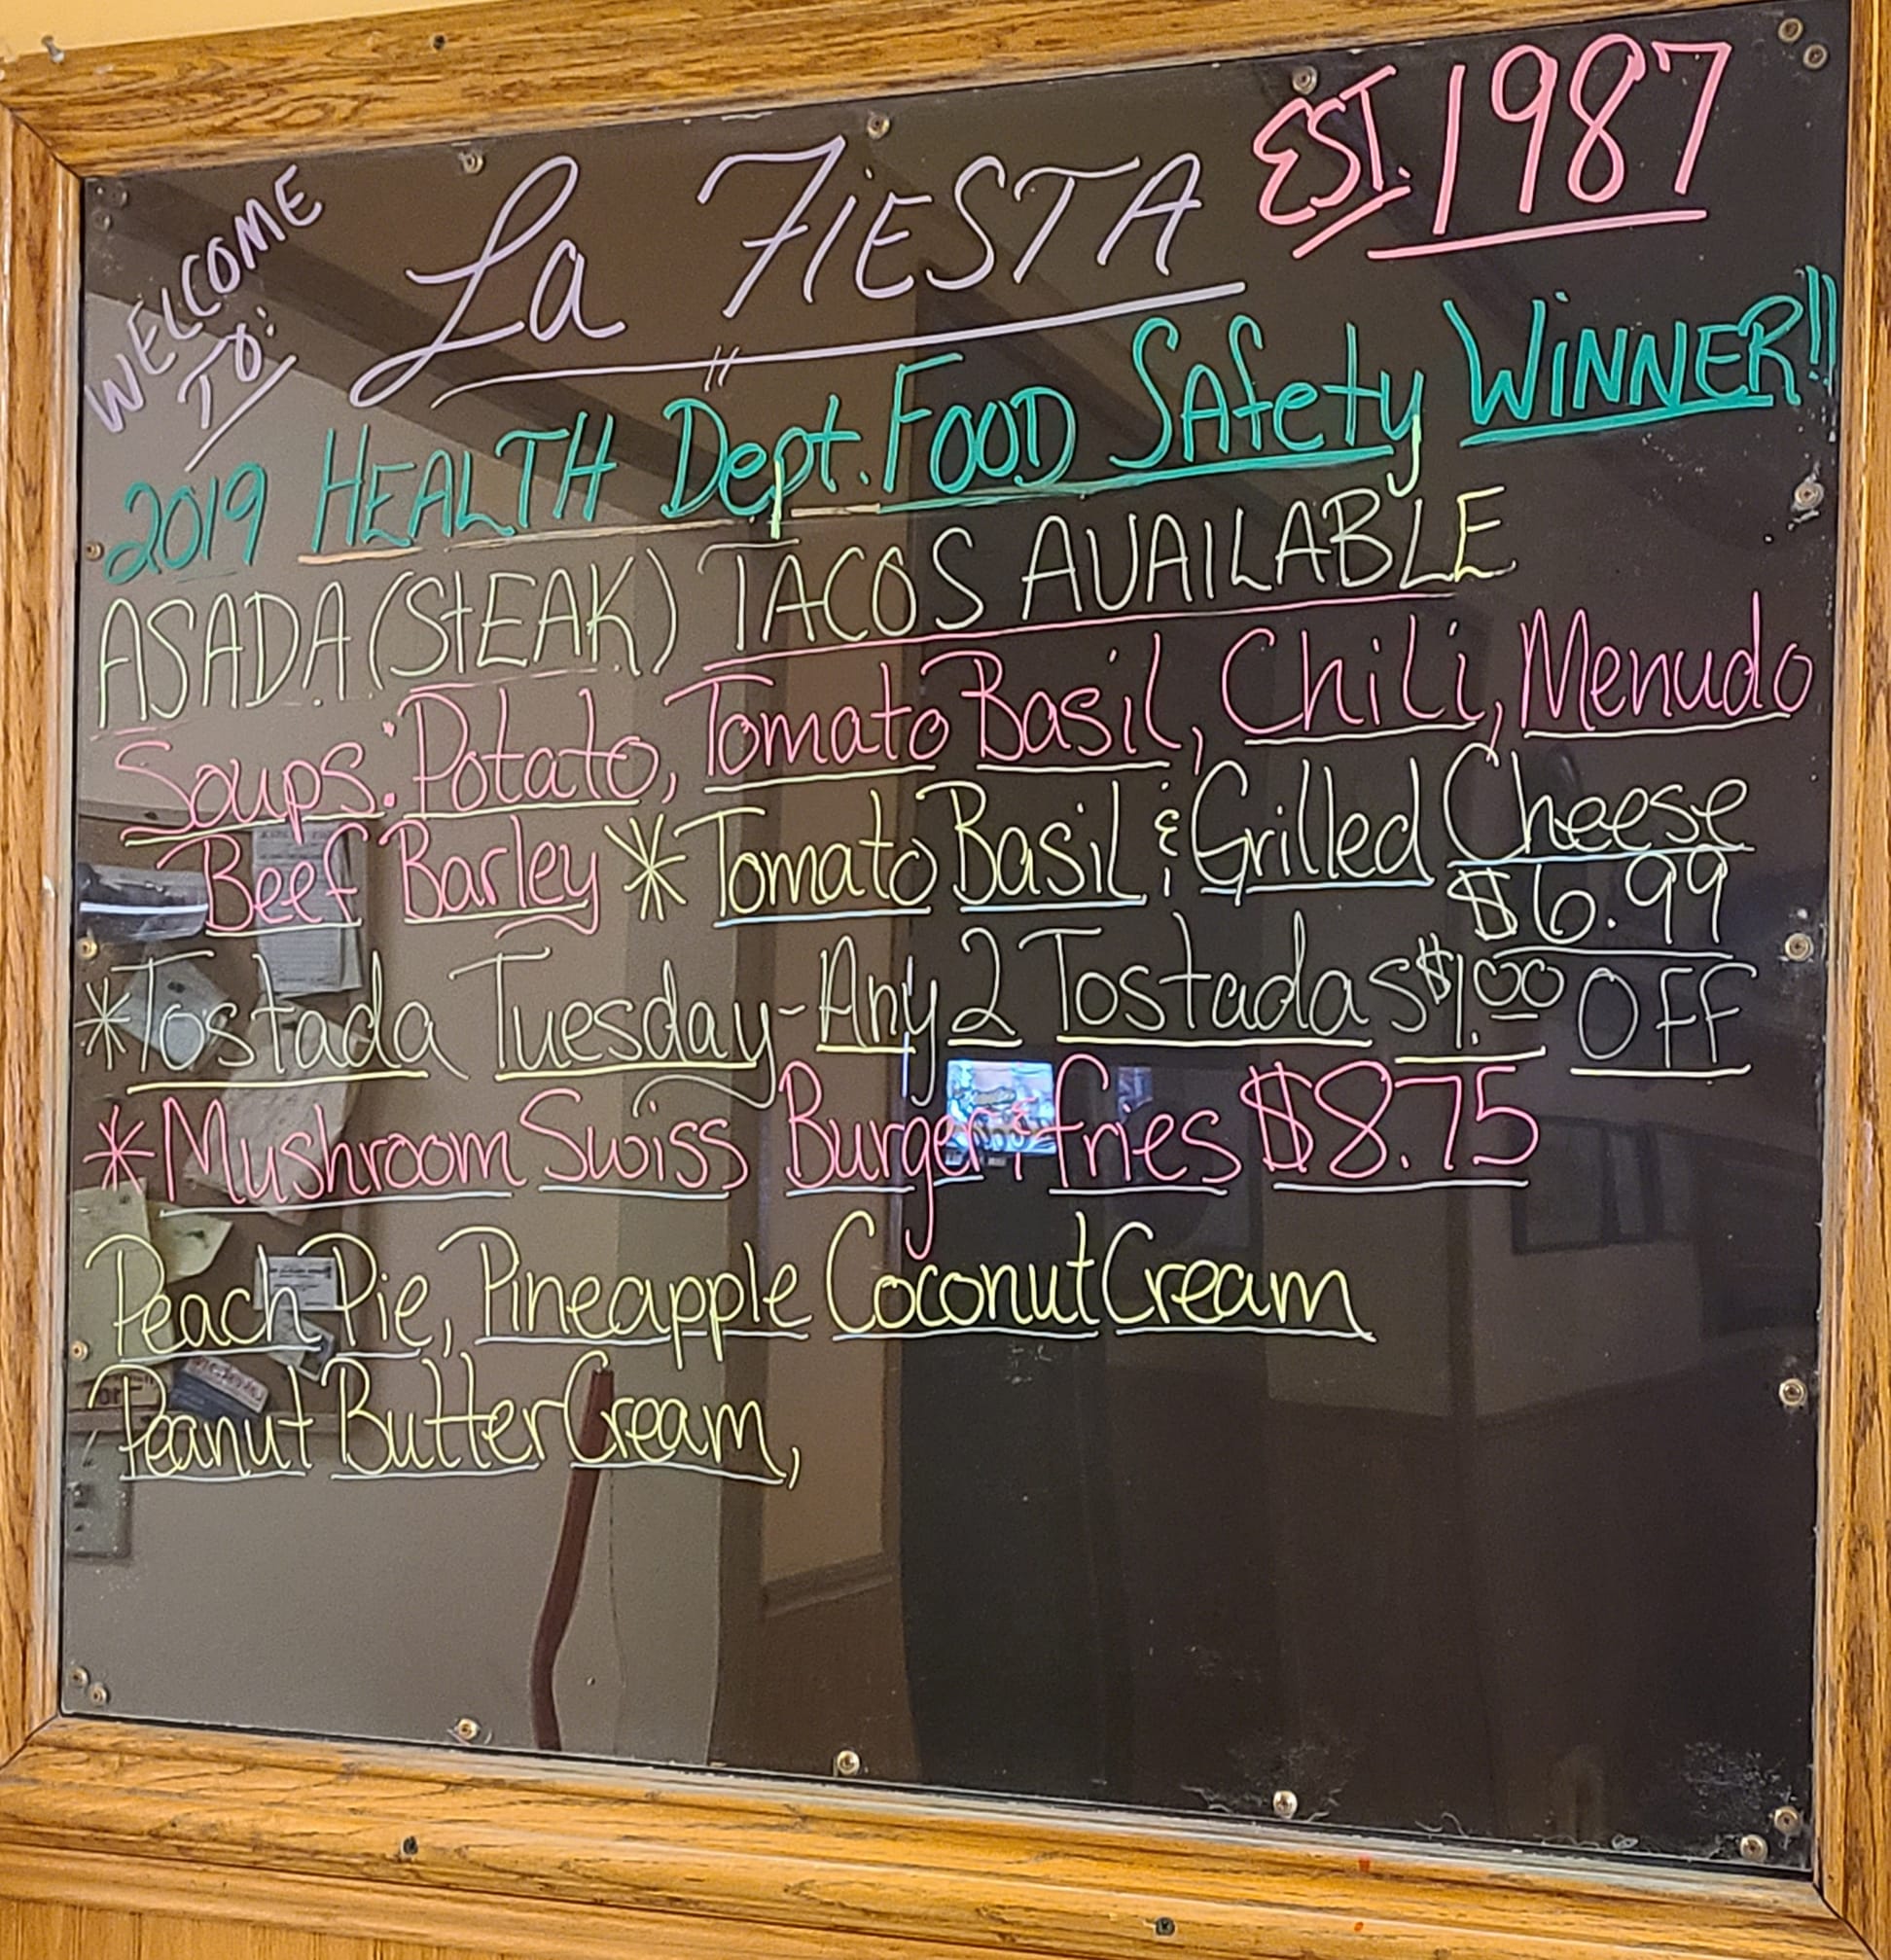 WELCOME
TO:
La FIESTA
EST. 1987
2019 HEALTH Dept. FOOD SAfety WiNNER!!
ASADA (StEAK) TACOS AVAILABLE
Soups: Potato, Tomato Basil, Chili, Menudo
Beef Barley * Tomato Basil & Grilled Cheese
$6.99
*Tostada Tuesday - Any 2 Tostadas $1.00 OFF
*Mushroom Swiss Burger & fries $8.75
Peach Pie, Pineapple Coconut Cream
Peanut Butter Cream,